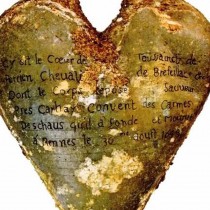 Cy est le Cœur de Toussaincts de
Perrien Chevalr de Brefeillac
Dont le corps repose Sauveur
Pres Carhay Convent des Carmes
Deschaus quil a fondé et mourut
a Rennes le 30 aoust